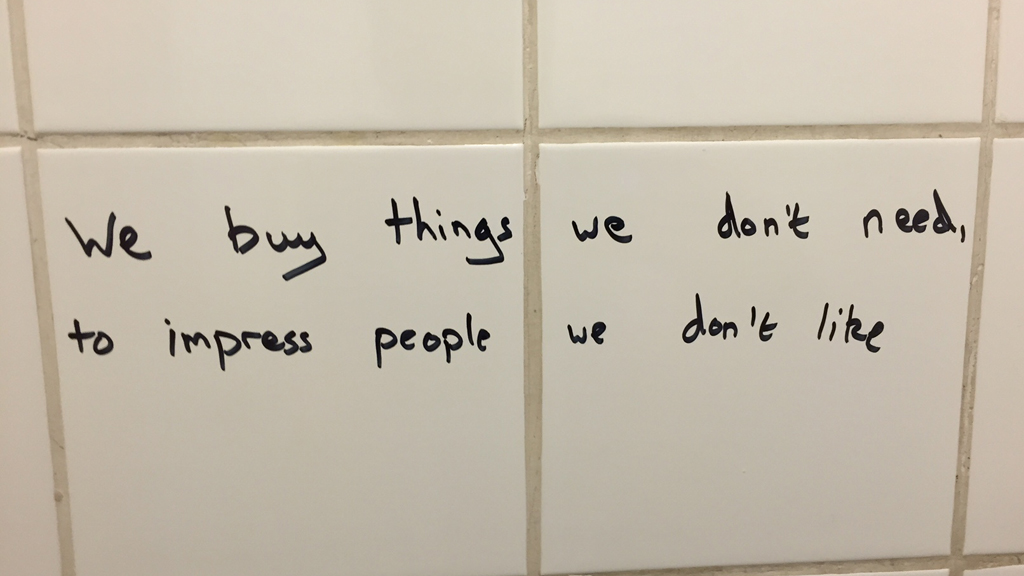 We buy things we don't need,
to impress people we don't like